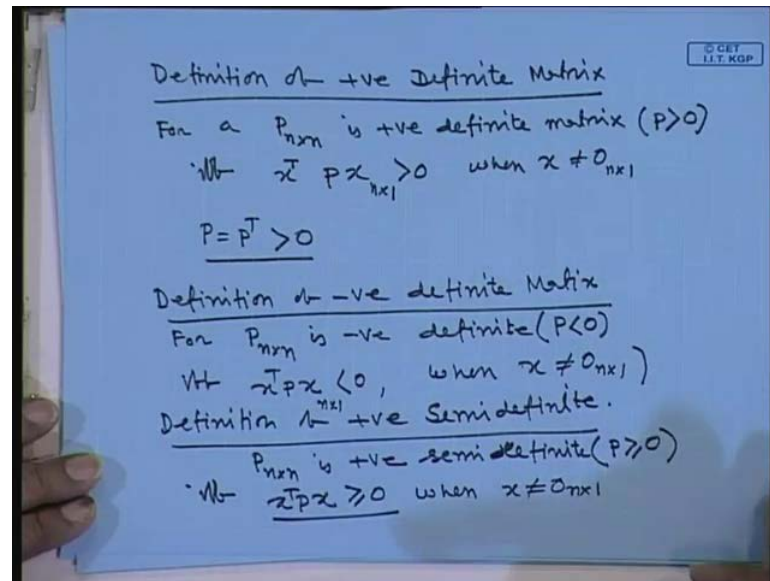 © CET
I.I.T. KGP
Definition of +ve Definite Matrix
For a Pnxn is +ve definite matrix (P>0)
iff xᵀ P x nx1 >0 when x ≠ 0nx1
P = Pᵀ > 0
Definition of -ve definite Matix
For Pnxn is -ve definite (P<0)
iff xᵀPx <0, when x ≠ 0nx1)
nx1
Definition of +ve Semidefinite.
Pnxn is +ve semidefinite (P⩾0)
iff xᵀPx ⩾ 0 when x ≠ 0nx1